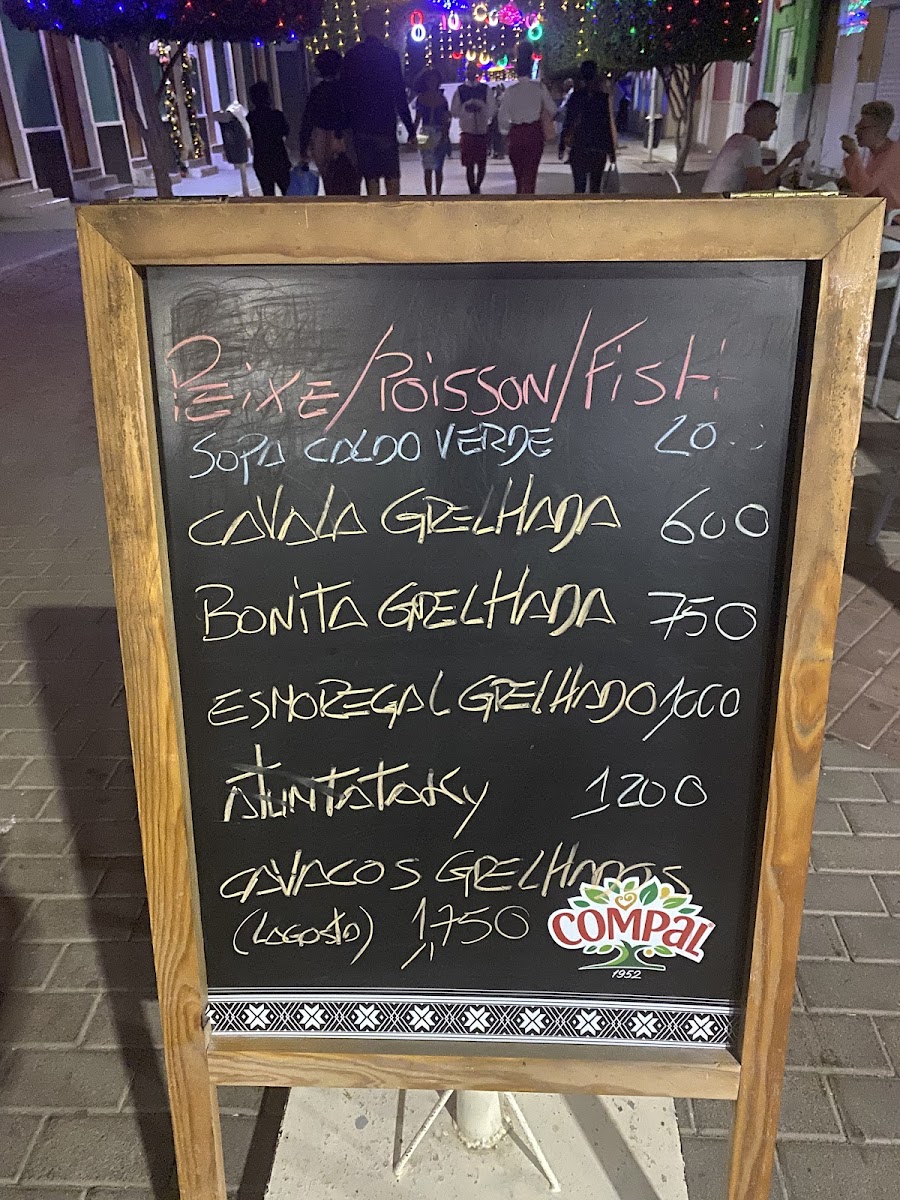 PEIXE/POISSON/FISH
SOPA CALDO VERDE 20
CAVALA GRELHADA 600
BONITA GRELHADA 750
ESMOREGAL GRELHADO 1000
ATUNTATAKY 1200
CAVACOS GRELHADOS
(LAGOSTA) 1,750
COMPAL
1952